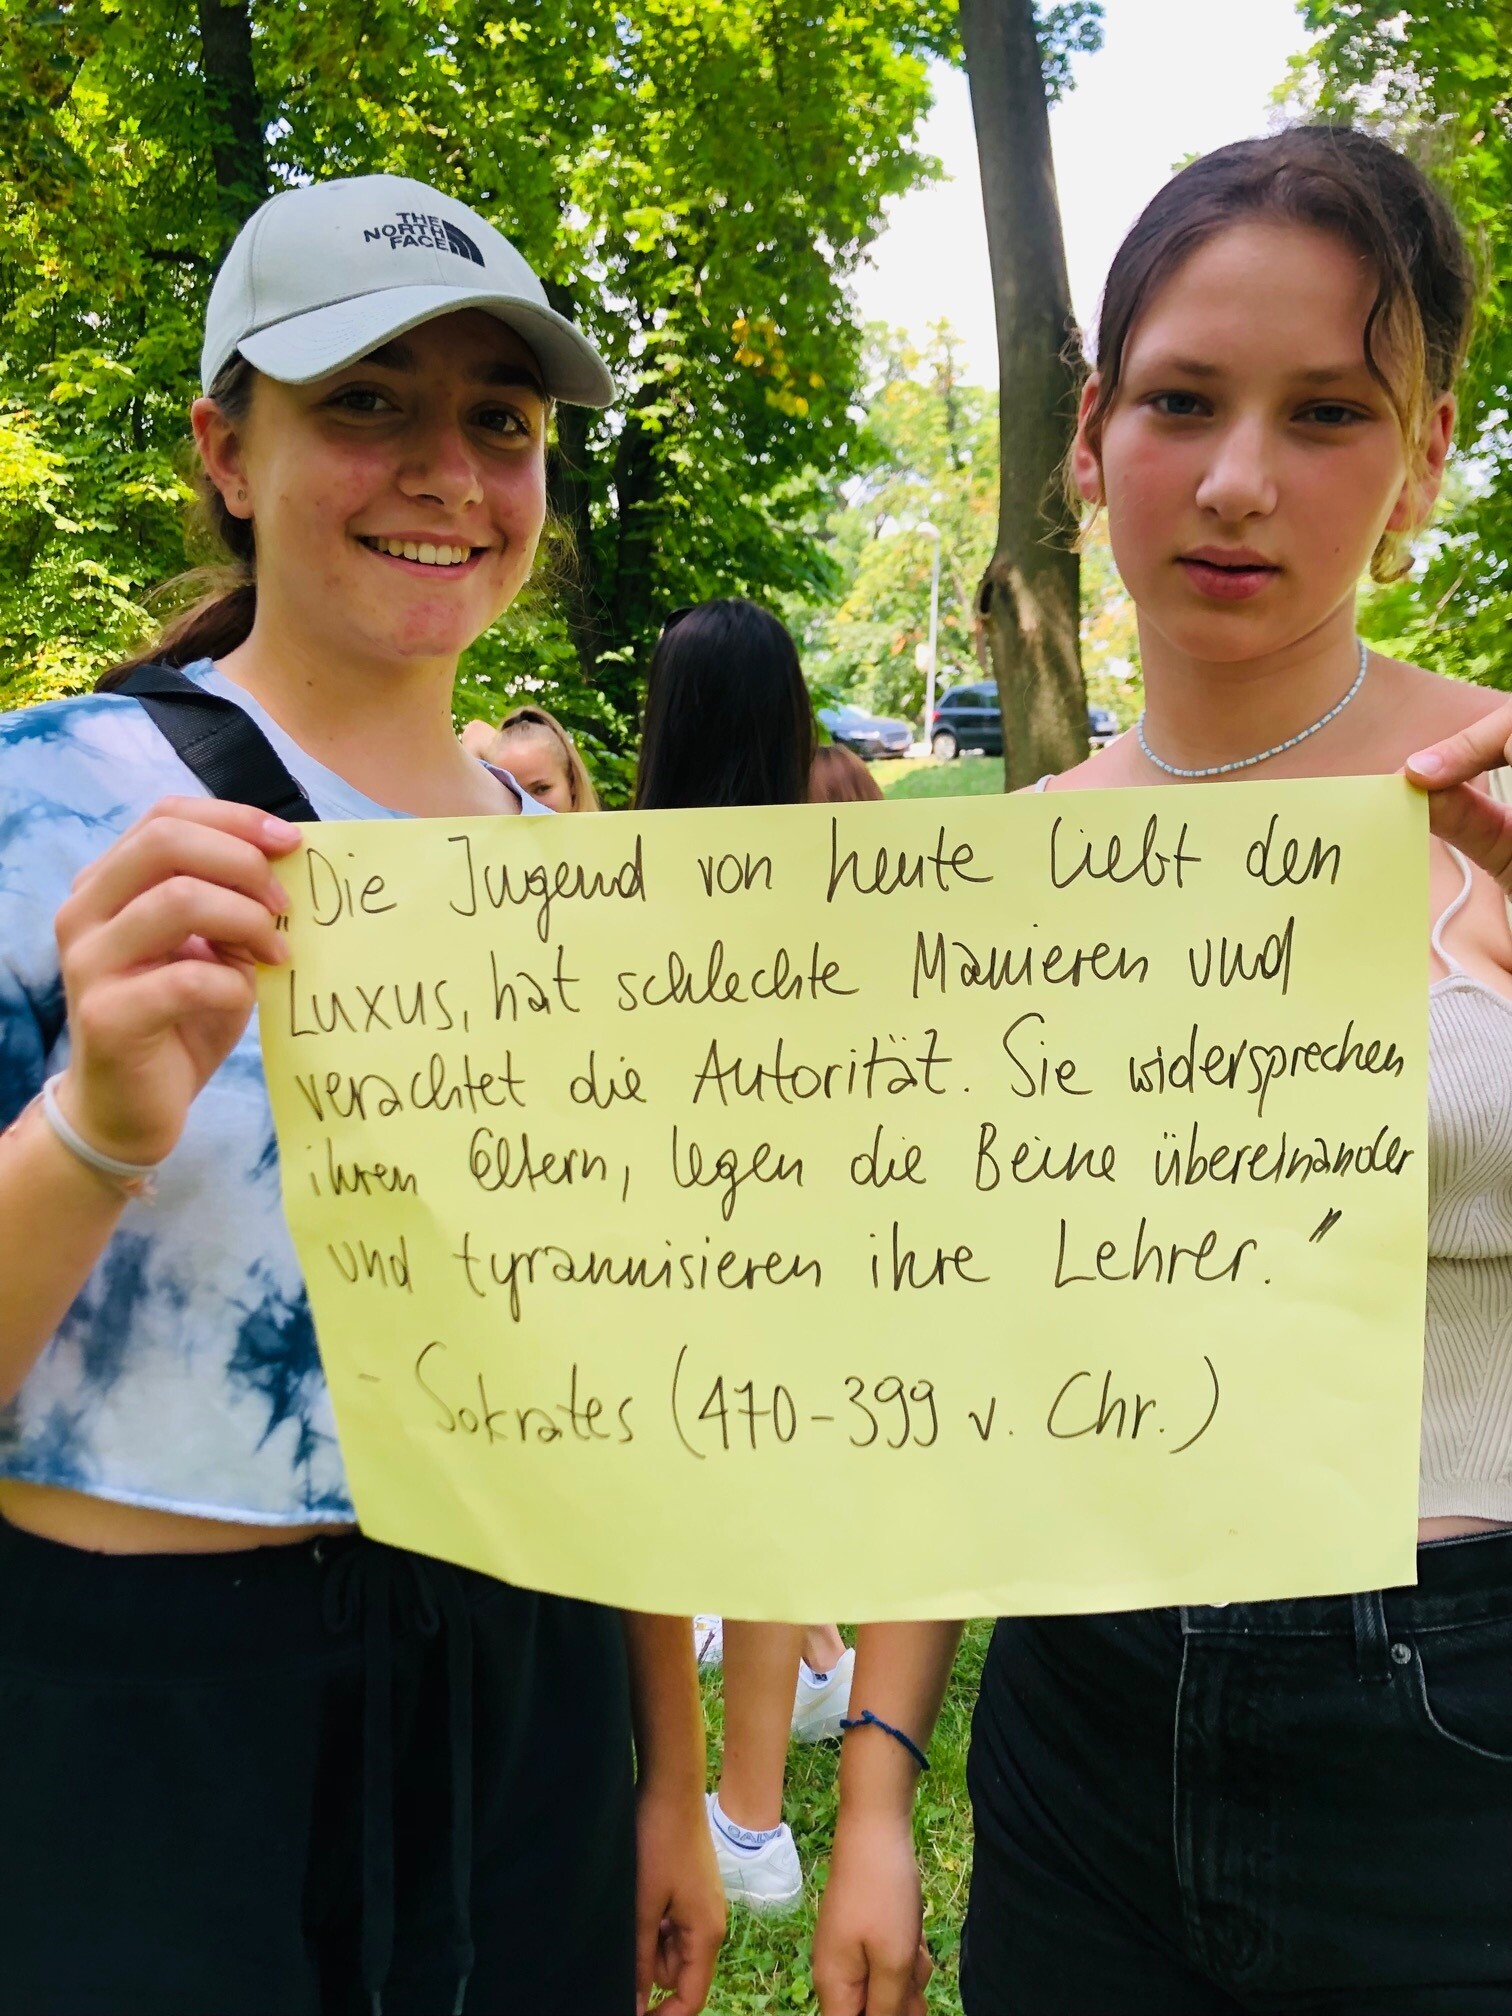 THE
NORTH
FACE
„Die Jugend von heute liebt den
Luxus, hat schlechte Manieren und
verachtet die Autorität. Sie widersprechen
ihren Eltern, legen die Beine übereinander
und tyrannisieren ihre Lehrer."
- Sokrates (470-399 v. Chr.)